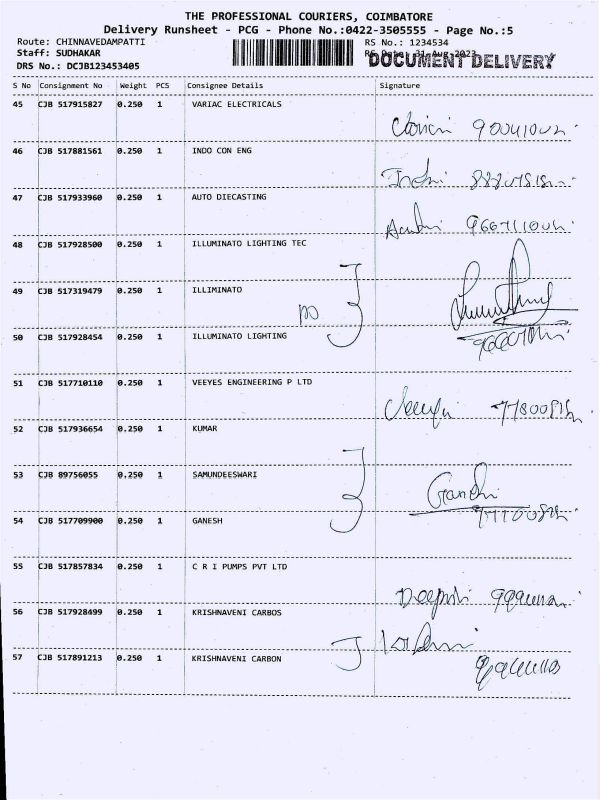 THE PROFESSIONAL COURIERS, COIMBATORE
Delivery Runsheet - PCG - Phone No.:0422-3505555 - Page No.:5
Route: CHINNAVEDAMPATTI RS No.: 1234534
Staff: SUDHAKAR RS Date: 31-Aug-2023
DOCUMENT DELIVERY
DRS No.: DCJB123453405
S No Consignment No Weight PCS Consignee Details Signature
45 CJB 517915827 0.250 1 VARIAC ELECTRICALS
46 CJB 517881561 0.250 1 INDO CON ENG
47 CJB 517933960 0.250 1 AUTO DIECASTING
48 CJB 517928500 0.250 1 ILLUMINATO LIGHTING TEC
49 CJB 517319479 0.250 1 ILLIMINATO
50 CJB 517928454 0.250 1 ILLUMINATO LIGHTING
51 CJB 517710110 0.250 1 VEEYES ENGINEERING P LTD
52 CJB 517936654 0.250 1 KUMAR
53 CJB 89756055 0.250 1 SAMUNDEESWARI
Gandhi
54 CJB 517709900 0.250 1 GANESH
55 CJB 517857834 0.250 1 C R I PUMPS PVT LTD
56 CJB 517928499 0.250 1 KRISHNAVENI CARBOS
57 CJB 517891213 0.250 1 KRISHNAVENI CARBON